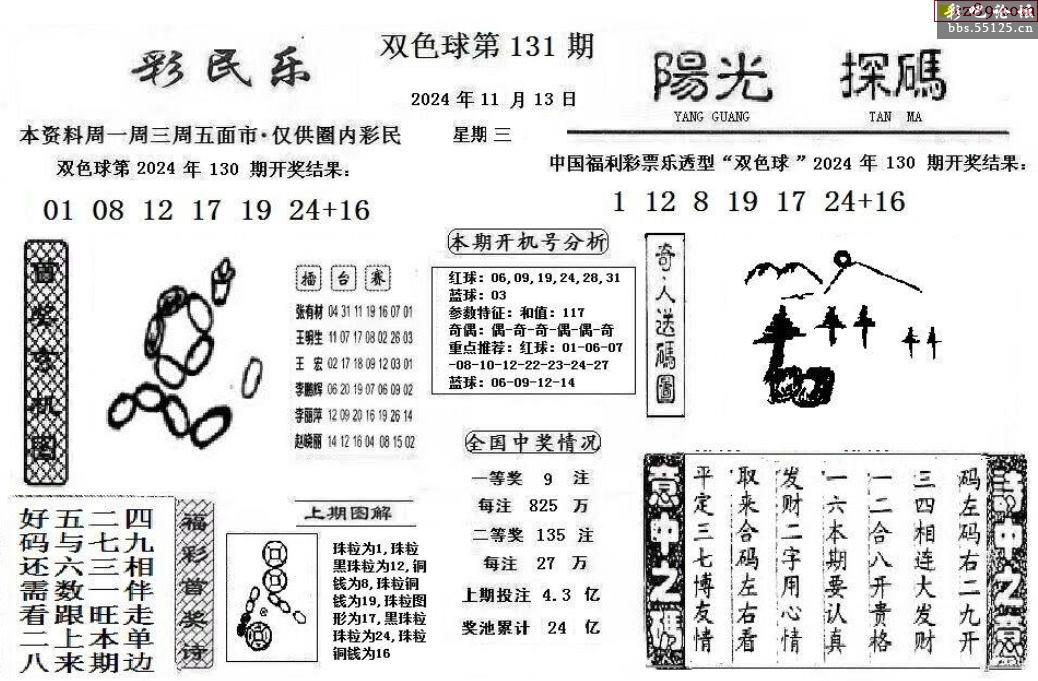 彩民乐
双色球第131期
2024年11月13日
星期三
陽光 探碼
YANG GUANG TAN MA
bbs.55125.cn
本资料周一周三周五面市·仅供圈内彩民
双色球第2024年130期开奖结果:
01 08 12 17 19 24+16
中国福利彩票乐透型“双色球”2024年130期开奖结果:
1 12 8 19 17 24+16
擂台赛
张有材 04 31 11 19 16 07 01
王明生 11 07 17 08 02 26 03
王宏 02 17 18 09 12 03 01
李鹏辉 06 20 19 07 06 09 02
李丽萍 12 09 20 16 19 26 14
赵晓丽 14 12 16 04 08 15 02
本期开机号分析
红球:06,09,19,24,28,31
蓝球:03
参数特征:和值:117
奇偶:偶-奇-奇-偶-偶-奇
重点推荐:红球:01-06-07
-08-10-12-22-23-24-27
蓝球:06-09-12-14
奇·人送碼圖
全国中奖情况
一等奖 9 注
每注 825 万
二等奖 135 注
每注 27 万
上期投注 4.3 亿
奖池累计 24 亿
四九相伴走单边
二七三一旺本期
五与六数跟上来
好码还需看二八
福彩首奖诗
上期图解
珠粒为1,珠粒
黑珠粒为12,铜
钱为8,珠粒铜
钱为19,珠粒图
形为17,黑珠粒
珠粒为24,珠粒
铜钱为16
码左码右二九开
三四相连大发财
一二合八开贵格
一六本期要认真
发财二字用心情
取来合码左右看
平定三七博友情
意中之碼